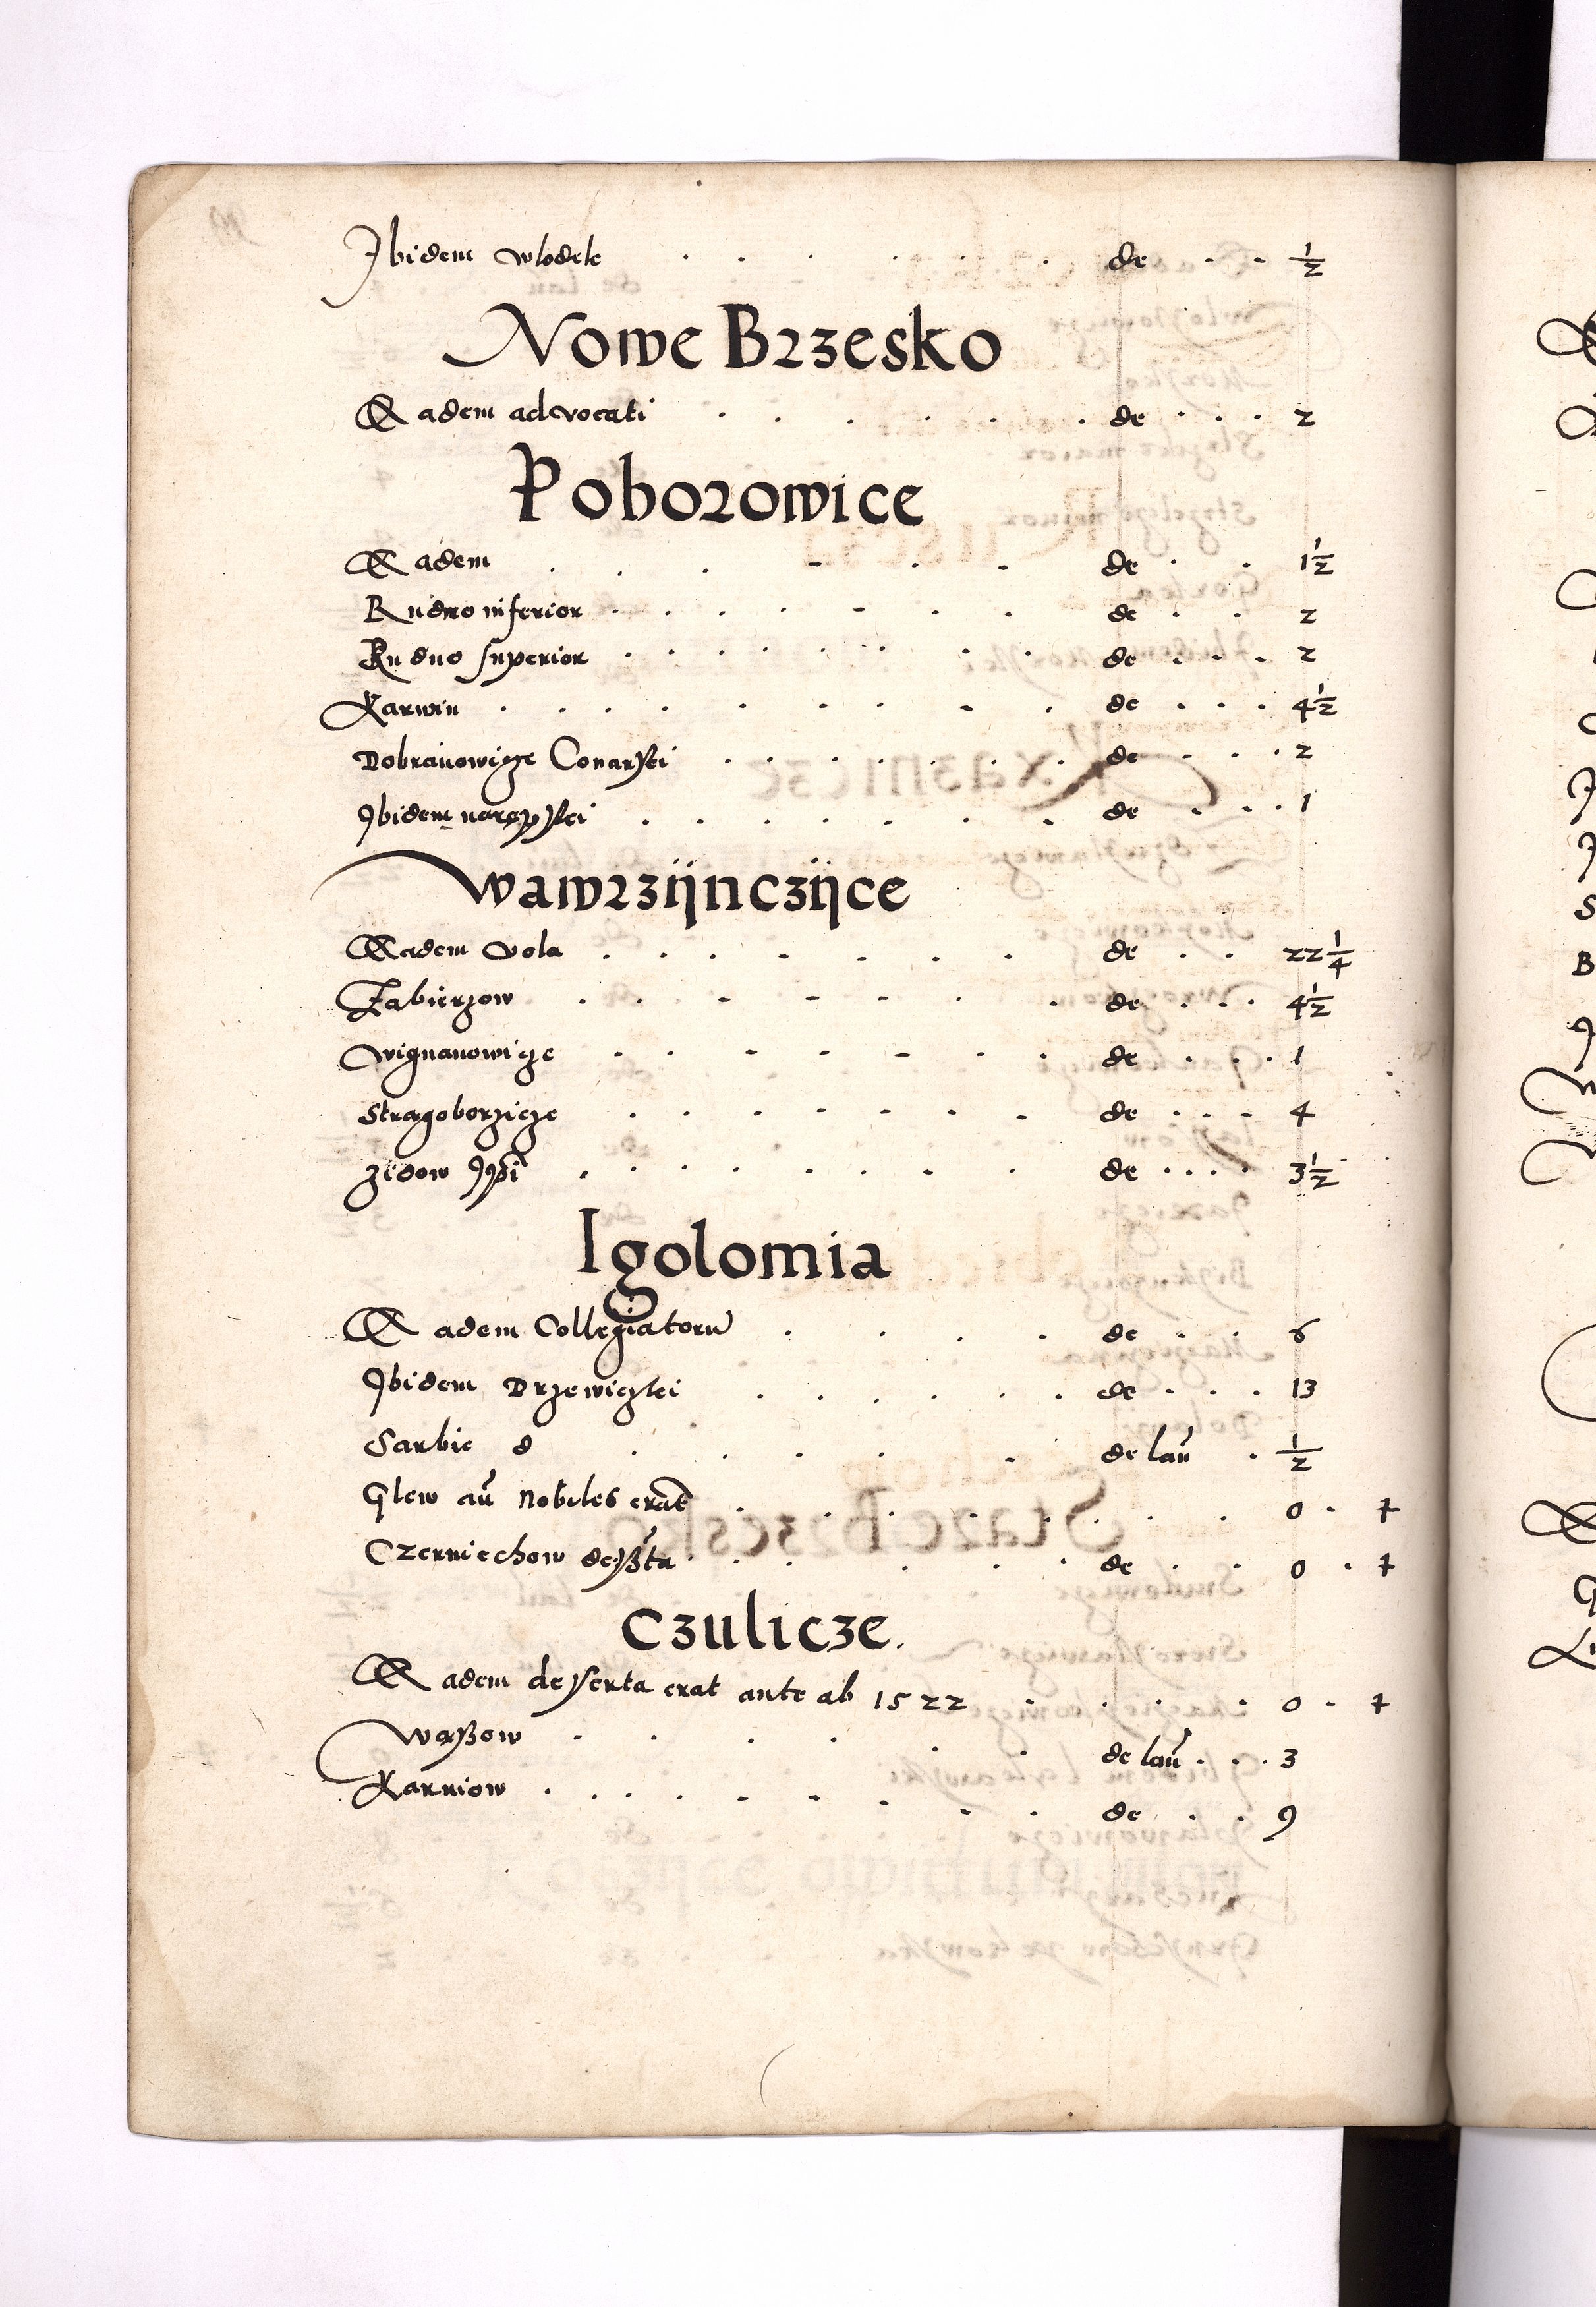 Ibidem wlodek . . . . . . de . . . 1/2
Nowe Brzesko
Eadem advocati . . . . . . de . . . 2
Poborowice
Eadem . . . . . . de . . 1 1/2
Rudno inferior . . . . . . de . . 2
Rudno superior . . . . . . . . de . . . 2
Karwin . . . . . . . . . de . . . 4 1/2
Dobranowicze Conarski . . . . . . de . . . 2
Ibidem . . . . . . de . . . 1
Wawrzÿnczÿce
Eadem vola . . . . . . . de . . 22 1/4
Zabierzow . . . . . . . de . . . 4 1/2
wignanowicze . . . . . . . de . . . 1
Stragoborzicze . . . . . . . de . . . 4
Zidow . . . . . . . . de . . . . 3 1/2
Igolomia
Eadem Collegiatorũ . . . . de . . 6
Ibidem Drzewiczki . . . . . de . . . 13
Sarbie d . . . . . de laũ . 1/2
Glew aũ nobiles erãt . . . . . . . . 0 . ‡
Czerniechow . . . . . . de . . 0 . ‡
Czulicze.
Eadem deserta erat ante ab 1522 . . . . 0 . ‡
Waßow . . . . . . de laũ . . . 3
Karniow . . . . . . . . . de . . 9